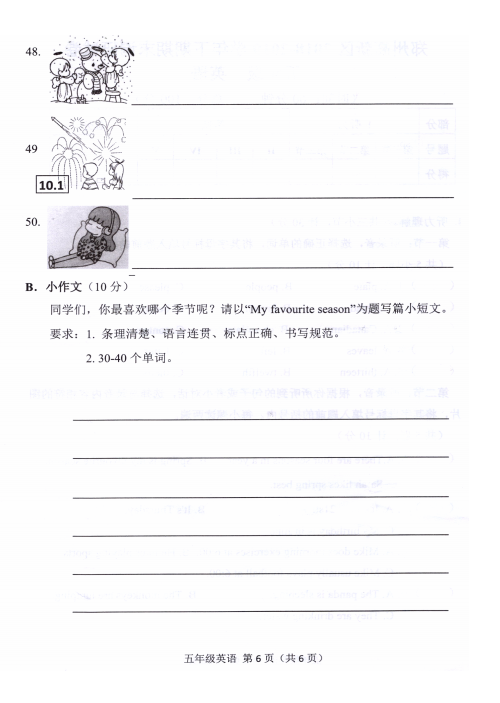 48.
49
10.1
50.
B．小作文（10 分）
同学们，你最喜欢哪个季节呢？请以“My favourite season”为题写篇小短文。
要求：1. 条理清楚、语言连贯、标点正确、书写规范。
2. 30-40 个单词。
五年级英语 第 6 页（共 6 页）